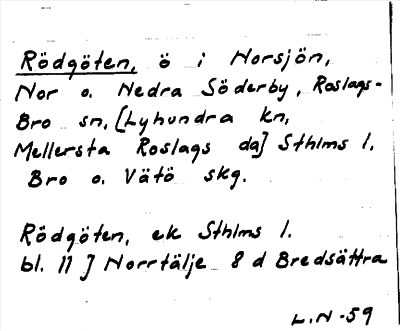 Rödgöten, ö i Norsjön,
Nor o. Nedra Söderby, Roslags-
Bro sn, [Lyhundra kn,
Mellersta Roslags da] Sthlms l.
Bro o. Vätö skg.
Rödgöten, ek Sthlms l.
bl. 11 J Norrtälje 8 d Bredsättra
L.N -59